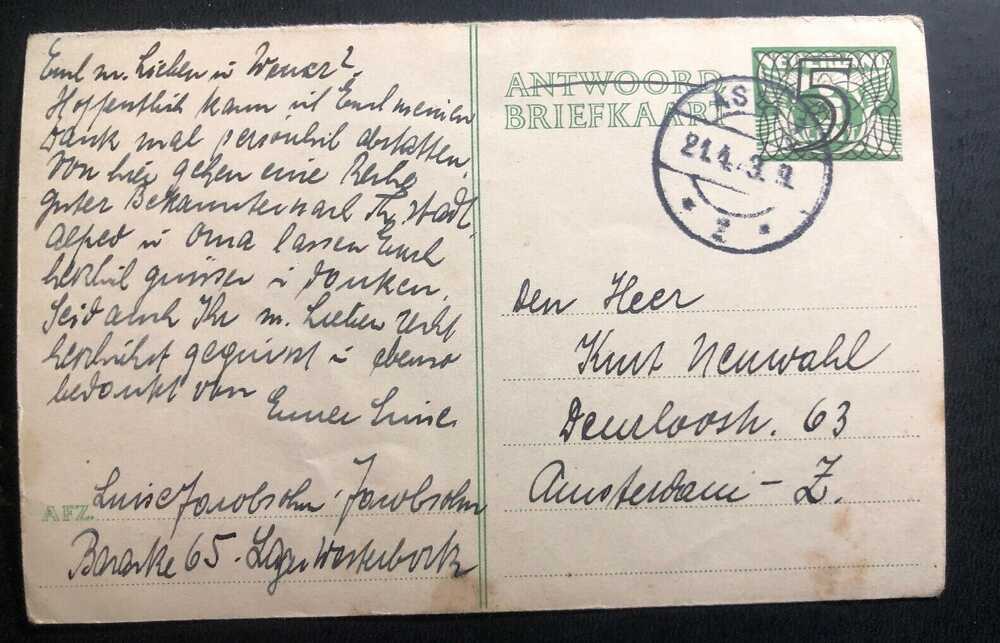 Euch m. Lieben u
Hoffentlich kann ich Euch meinen
Dank mal persönlich abstatten.
Von hier gehen eine Reihe
guter Bekannter nach Th. stadt.
Alfred u Oma lassen Euch
herzlich grüssen u danken.
Seid auch Ihr m. Lieben recht
herzlichst gegrüsst u ebenso
bedankt von
Eurer Luise.
AFZ. Luise Jacobsohn-Jacobsohn
Baracke 65 - Lager Westerbork
ANTWOORD
BRIEFKAART
5
21.4.
Z
Den Heer
Kurt Neuwahl
Deurloostr. 63
Amsterdam - Z.